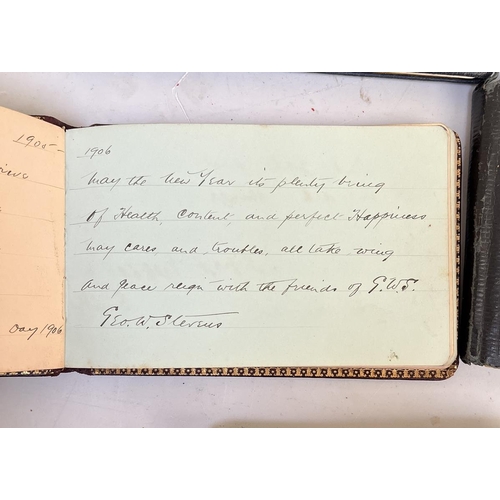 1905
1906
May the New Year its plenty bring
Of Health, content, and perfect Happiness,
May cares, and troubles, all take wing
And peace reign with the friends of G.W.S.
Geo. W. Stevens
Day 1906